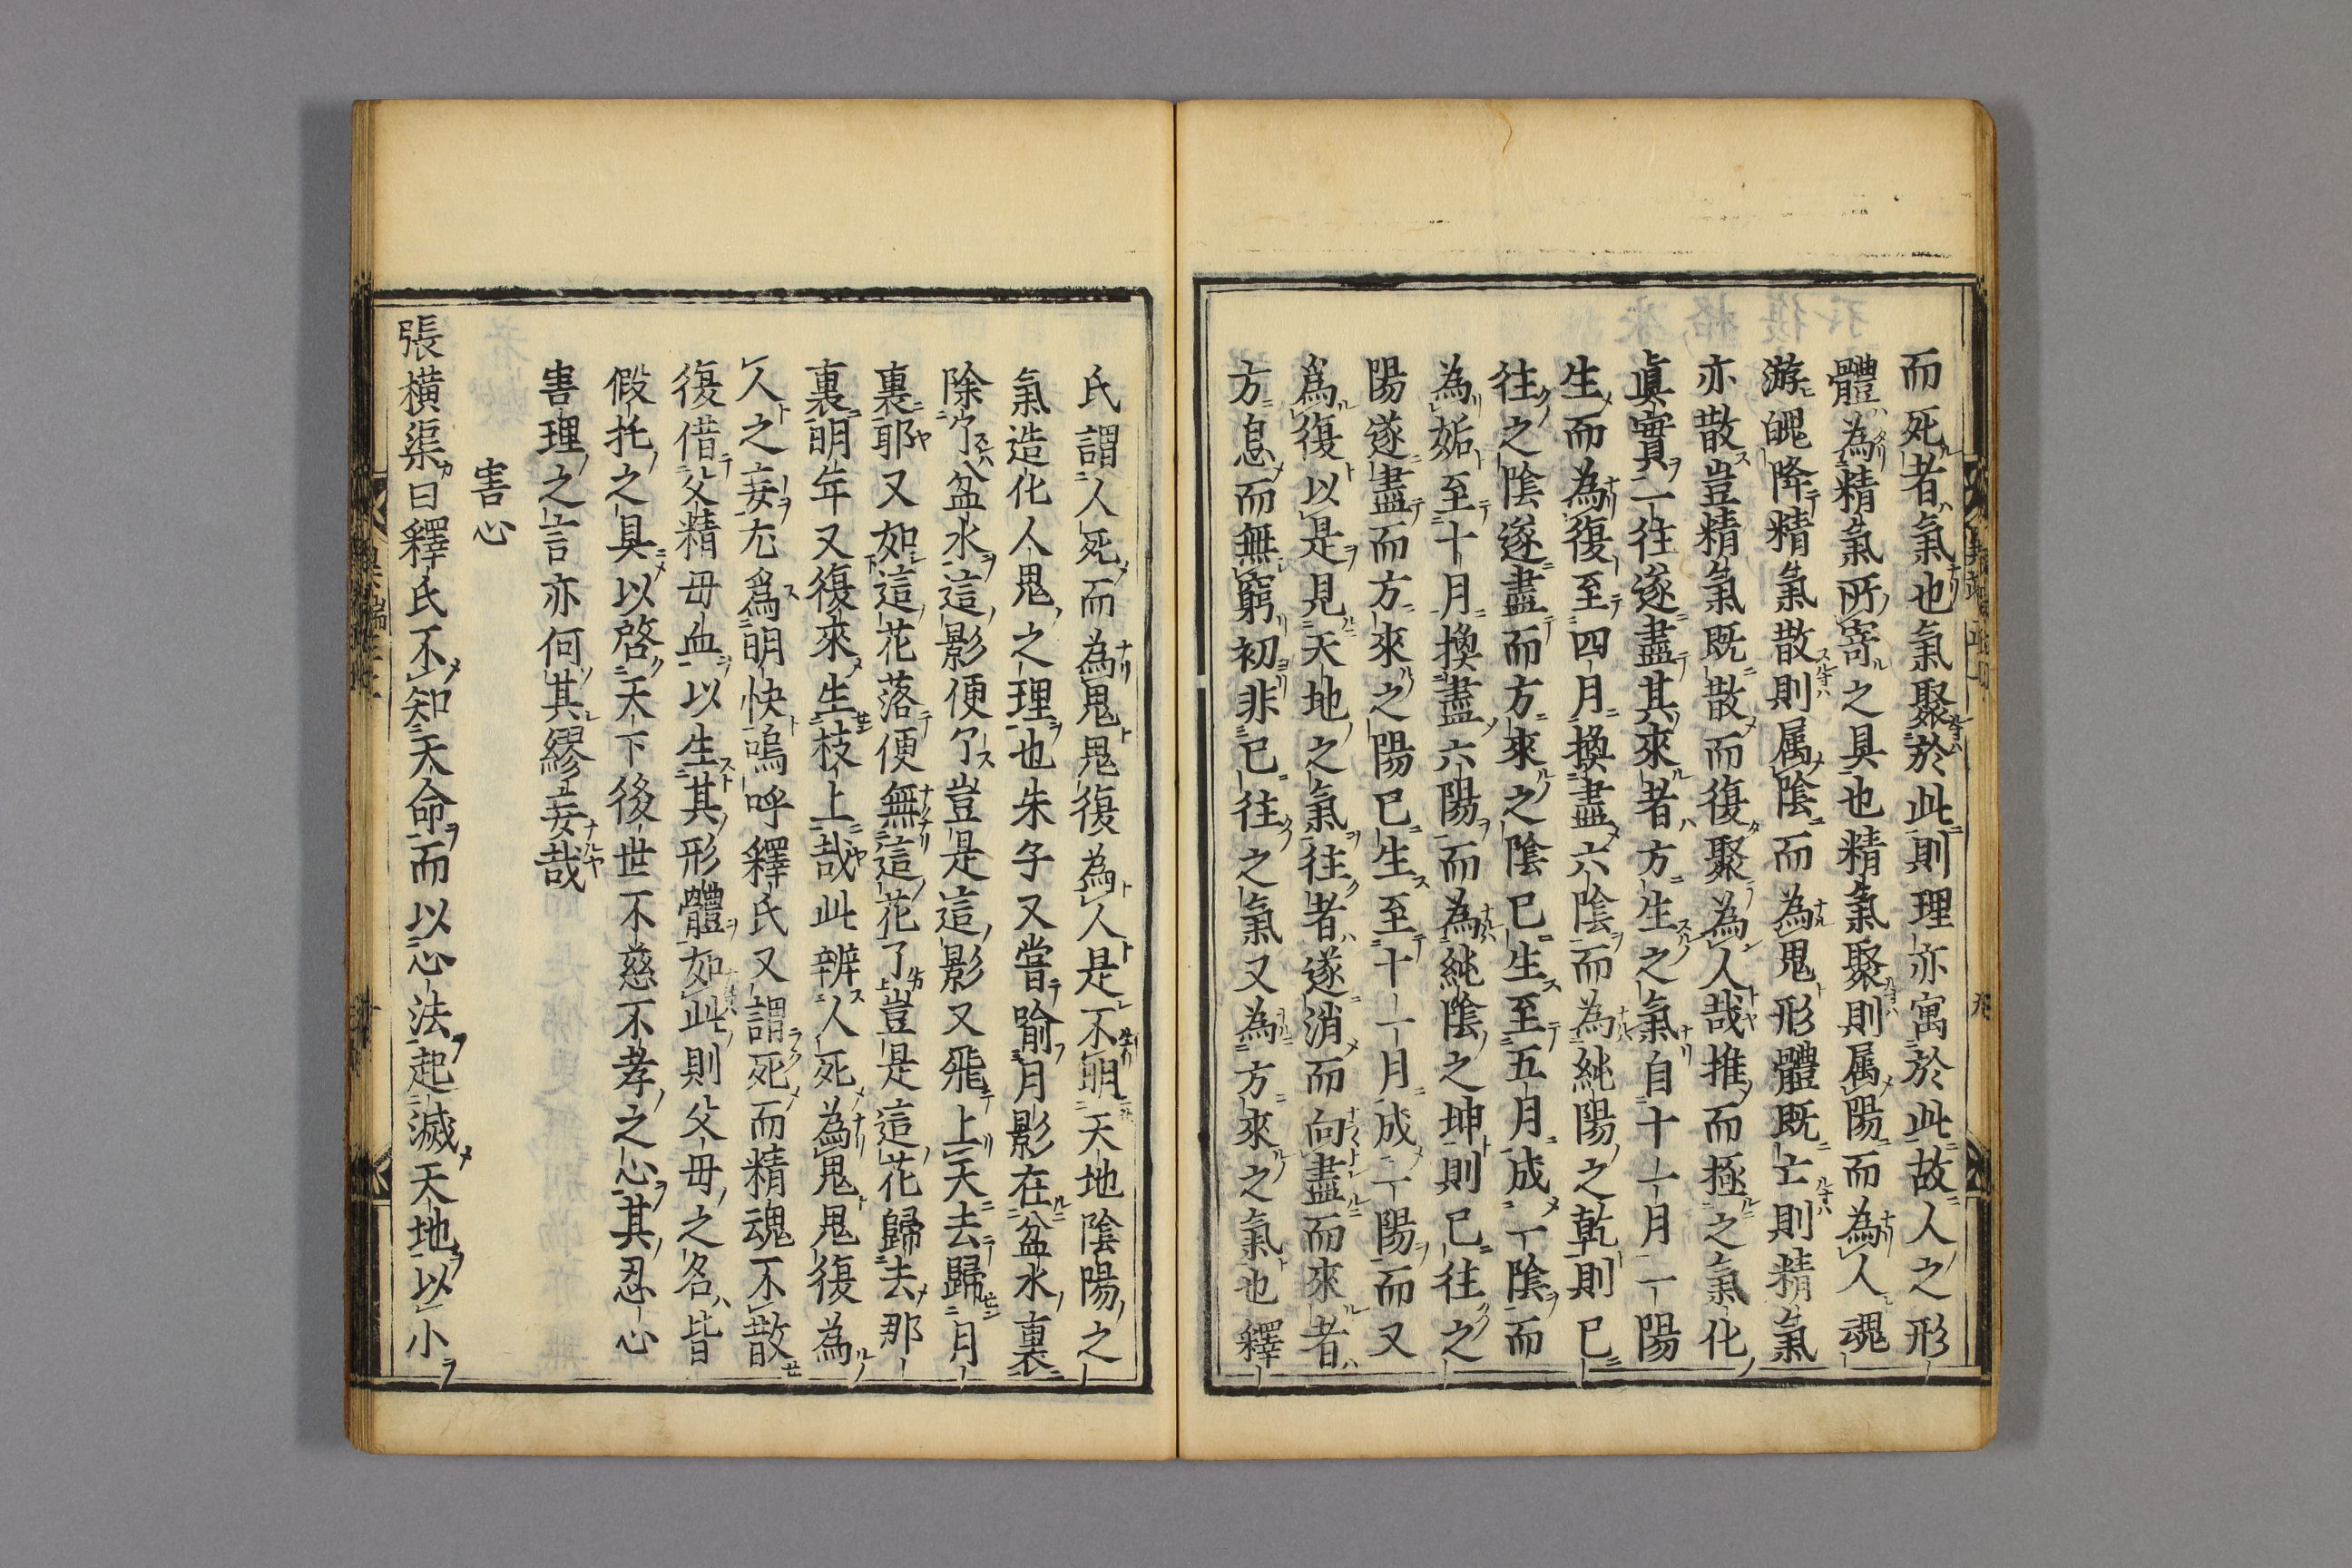 而死者氣也氣聚於此則理亦寓於此故人之形
體為精氣所寄之具也精氣聚則属陽而為人魂
游魄降精氣散則属陰而為鬼形體既亡則精氣
亦散豈精氣既散而復聚為人哉推而極之氣化
眞實一往遂盡其來者方生之氣自十一月一陽
生而為復至四月換盡六陰而為純陽之乾則已
往之陰遂盡而方來之陰已生至五月成一陰而
為姤至十月換盡六陽而為純陰之坤則已往之
陽遂盡而方來之陽已生至十一月成一陽而又
爲復以是見天地之氣往者遂消而向盡而來者
方息而無窮初非已往之氣又為方來之氣也釋
氏謂人死而為鬼鬼復為人是不明天地陰陽之
氣造化人鬼之理也朱子又嘗喻月影在盆水裏
除了盆水這影便了豈是這影又飛上天去歸月
裏耶又如這花落便無這花了豈是這花歸去那
裏明年又復來生枝上哉此辨人死為鬼鬼復為
人之妄尤爲明快嗚呼釋氏又謂死而精魂不散
復借父精母血以生其形體如此則父母之名皆
假托之具以啓天下後世不慈不孝之心其忍心
害理之言亦何其繆妄哉
害心
張橫渠曰釋氏不知天命而以心法起滅天地以小